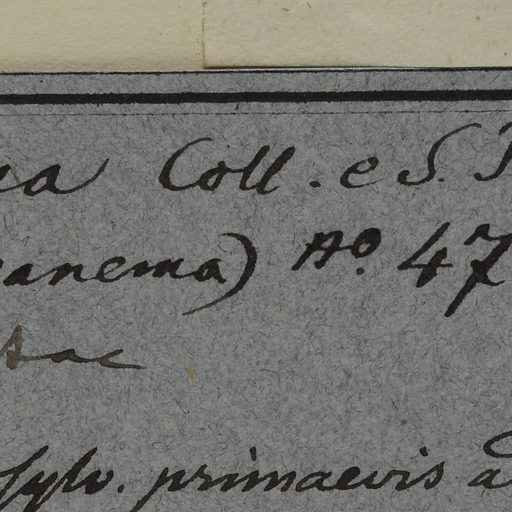 Coll. e S.
anema) No. 47
ae
Sylv. primaevis a